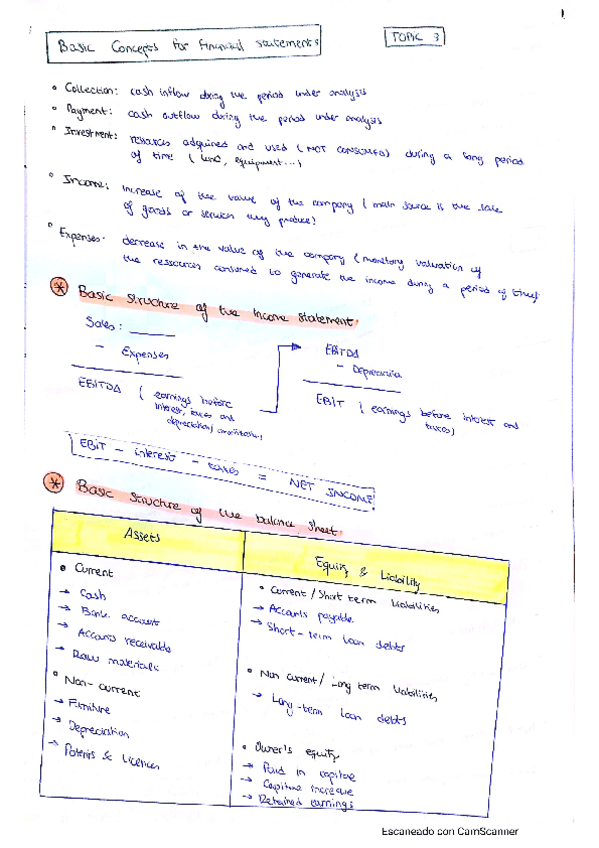 Basic Concepts for financial statements
TOPIC 3
• Collection: cash inflow during the period under analysis
• Payment: cash outflow during the period under analysis
• Investment: resources adquired and used (NOT CONSUMED) during a long period
of time (land, equipment...)
• Income: increase of the value of the company (main source is the sale
of goods or services they produce)
• Expenses: decrease in the value of the company (monetary valuation of
the ressources consumed to generate the income during a period of time)
* Basic structure of the income statement.
Sales:
- Expenses
EBITDA ( earnings before
interest, taxes and
depreciation/ amortization)
EBITDA
- Depreciation
EBIT ( earnings before interest and
taxes)
EBIT - interest - taxes = NET INCOME
* Basic structure of the balance sheet.
Assets
• Current
→ Cash
→ Bank account
→ Accounts receivable
→ Raw materials
• Non-current
→ Furniture
→ Depreciation
→ Patents & Licences
Equity & Liability
• Current / Short term liabilities
→ Accounts payable
→ Short-term loan debts
• Non current / Long term liabilities
→ Long-term loan debts
• Owner's equity
→ Paid in capital
→ Capital increase
→ Retained earnings
Escaneado con CamScanner